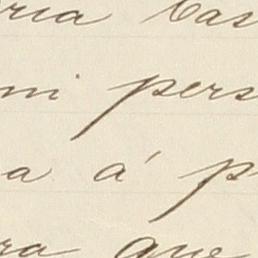 ria bas
mi pers
a á p
ra que